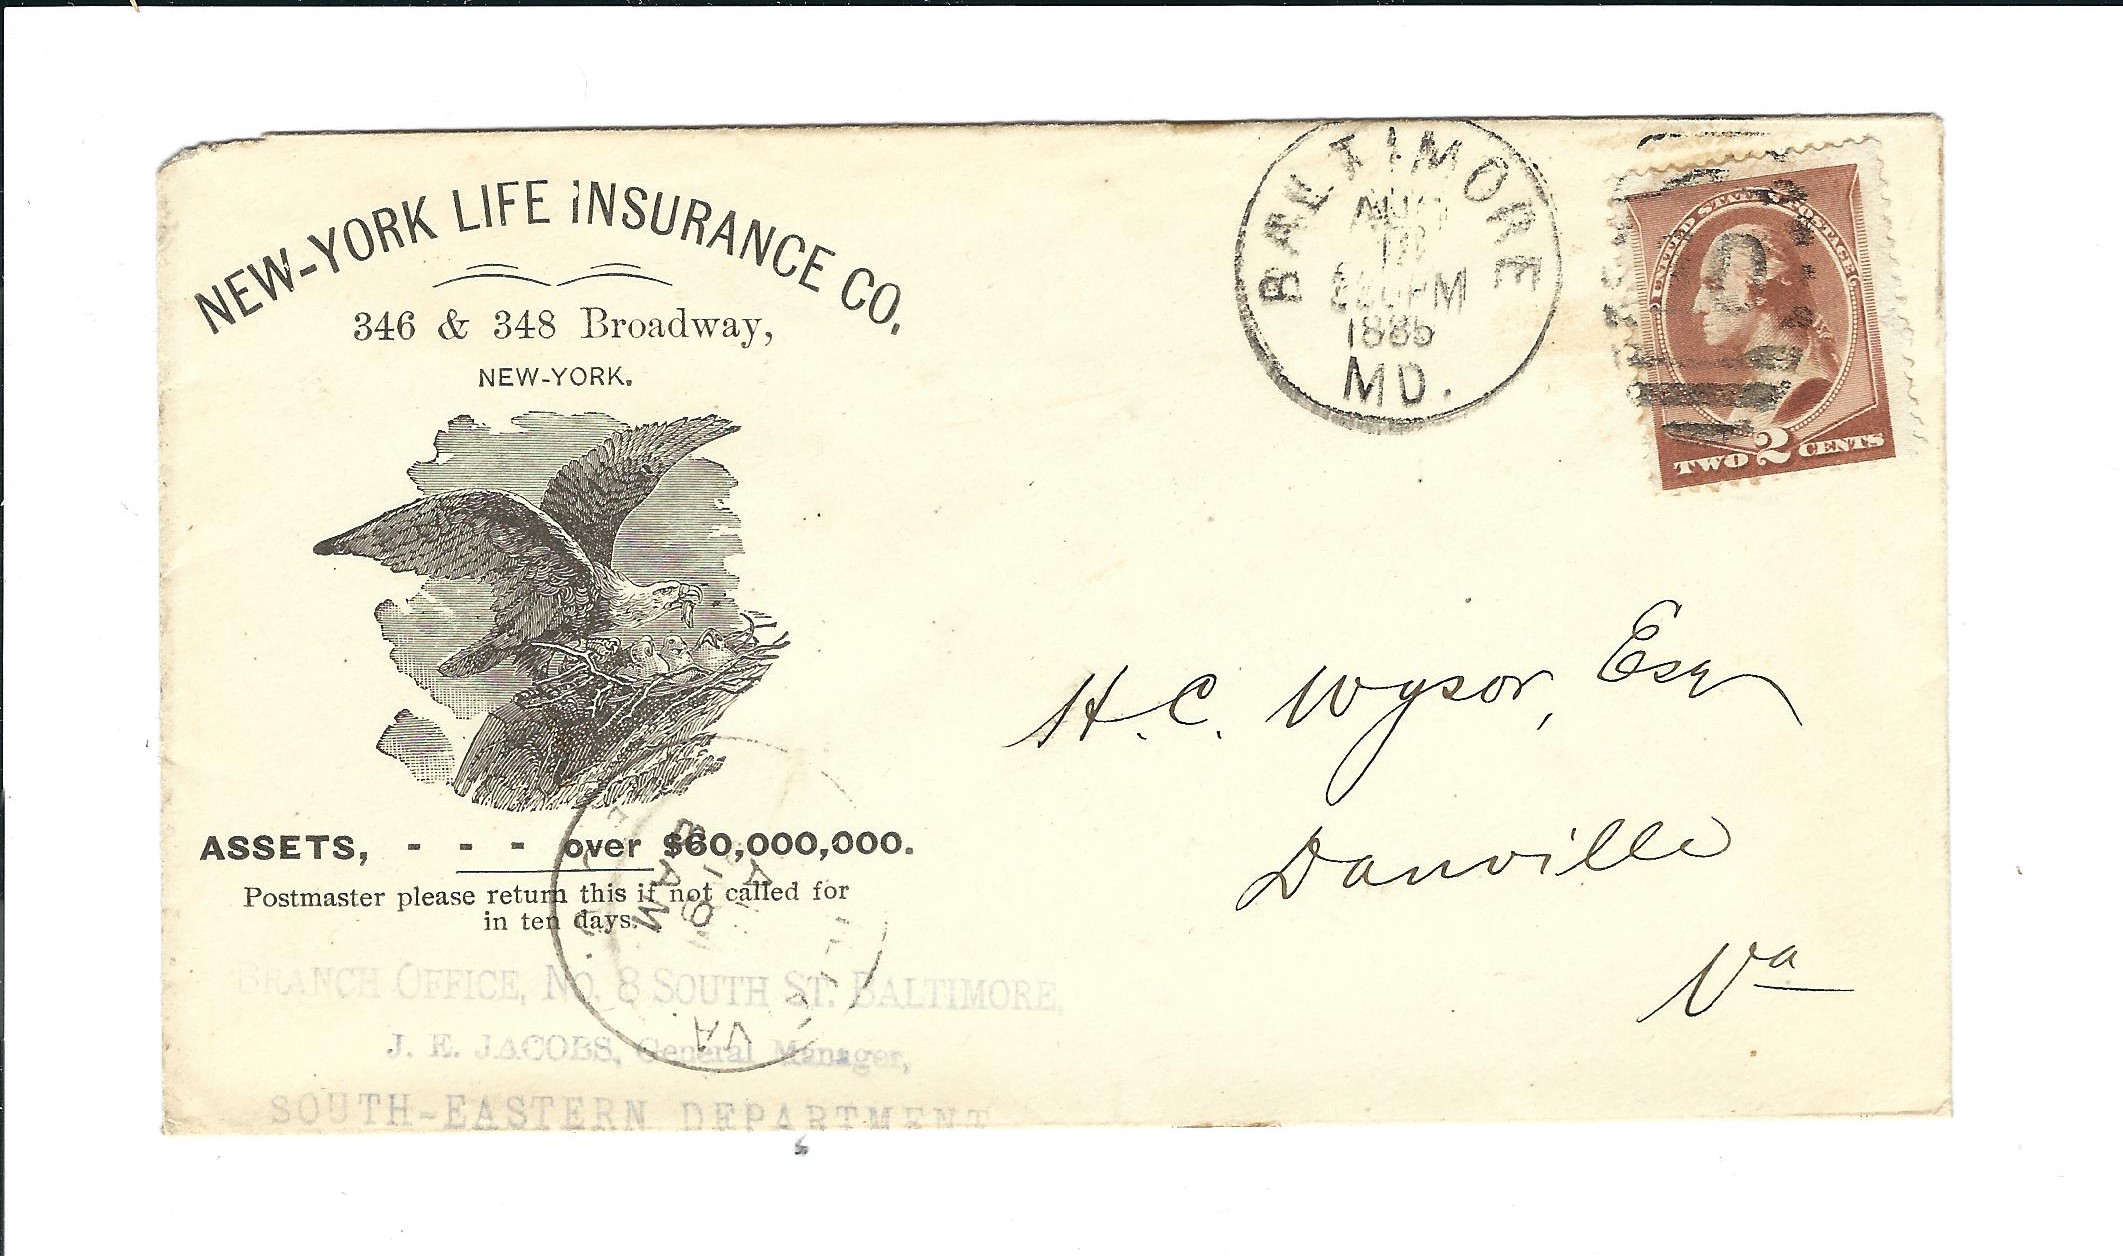 NEW-YORK LIFE INSURANCE CO.
346 & 348 Broadway,
NEW-YORK.
ASSETS, - - - over $60,000,000.
Postmaster please return this if not called for
in ten days.
BRANCH OFFICE, No. 8 SOUTH ST. BALTIMORE,
J. E. JACOBS, General Manager,
SOUTH-EASTERN DEPARTMENT
BALTIMORE
AUG
18
PM
1885
MD.
UNITED STATES POSTAGE
TWO 2 CENTS
H. C. Wysor, Esq
Danville
Va
19
AM
VA.